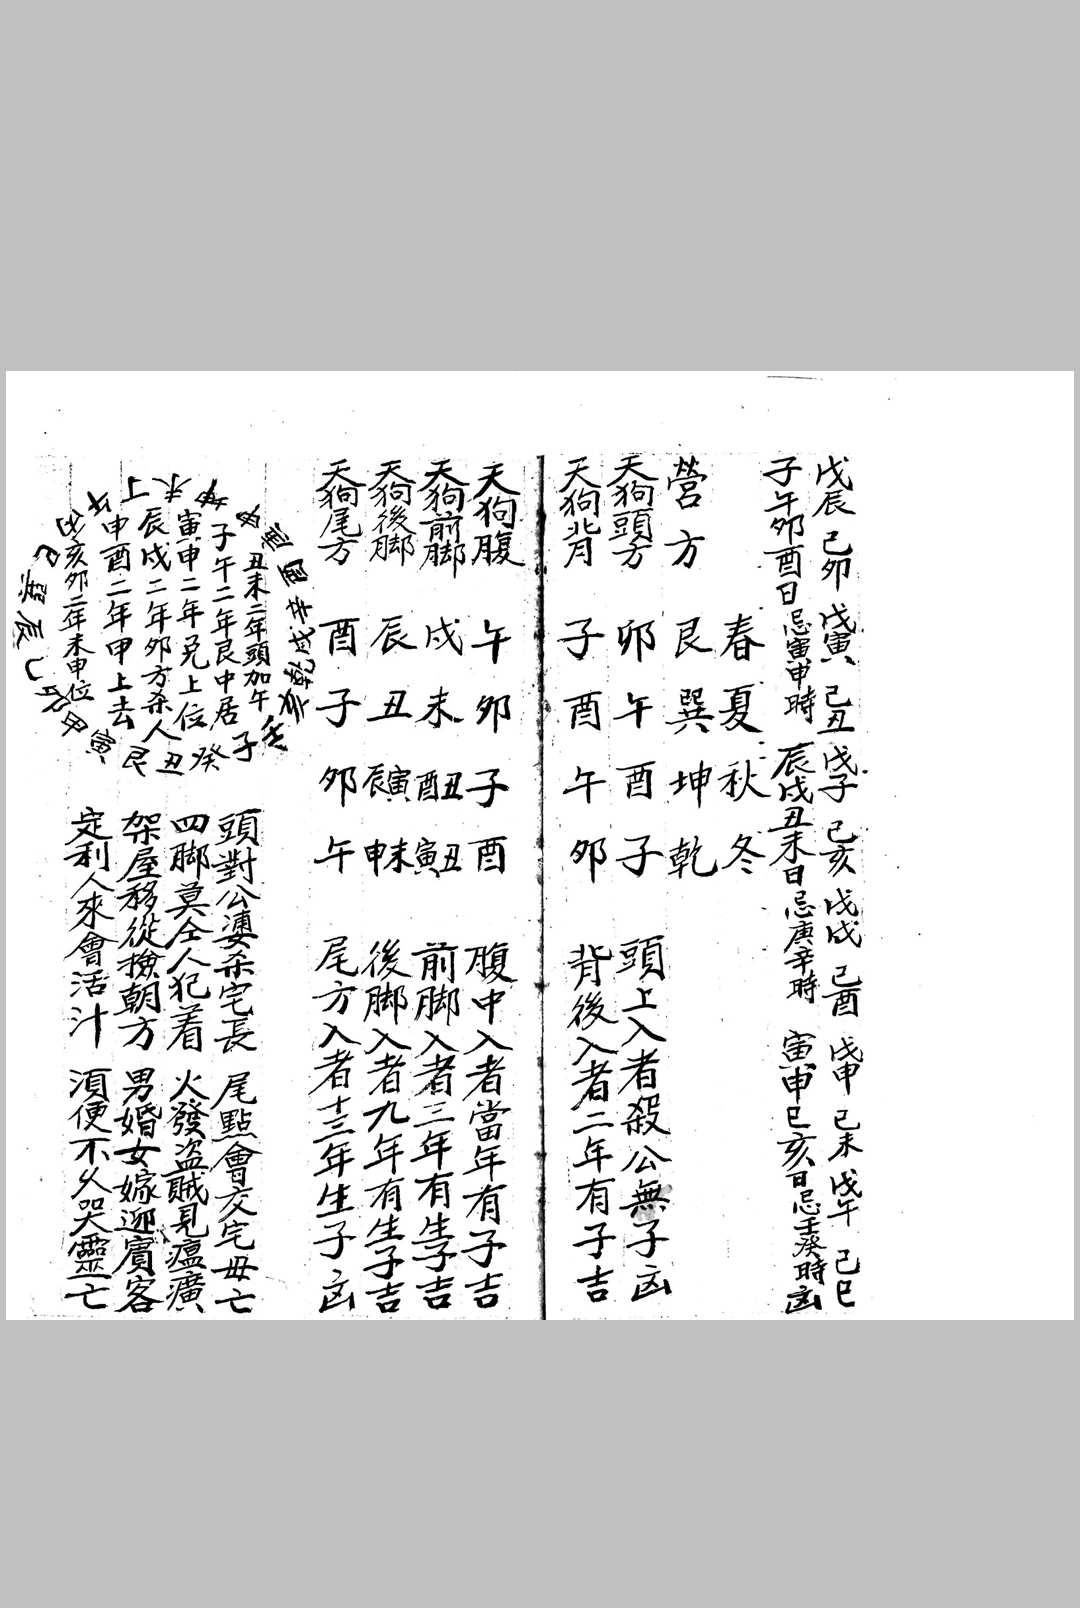 戊辰 己卯 戊寅 己丑 戊子 己亥 戊戌 己酉 戊申 己未 戊午 己巳
子午卯酉日忌寅申時 辰戌丑未日忌庚辛時 寅申巳亥日忌壬癸時凶
春 夏 秋 冬
營方 艮 巽 坤 乾
天狗頭方 卯 午 酉 子 頭上入者殺公無子凶
天狗背 子 酉 午 卯 背後入者二年有子吉
天狗腹 午 卯 子 酉 腹中入者當年有子吉
天狗前脚 戌 未 丑酉 丑寅 前脚入者三年有生子吉
天狗後脚 辰 丑 寅辰 未申 後脚入者九年有生子吉
天狗尾方 酉 子 卯 午 尾方入者十三年生子凶
丑未二年頭加午
子午二年艮中居
寅申二年兌上位
辰戌二年卯方杀人
申酉二年甲上去
亥卯二年未申位
子 癸 丑 艮 寅 甲 卯 乙 辰 巽 巳 丙 丁 未 坤 申 辛 戌 乾 亥 壬
頭對公婆杀宅長 尾點會交宅毋亡
四脚莫仝人犯着 火發盗賊見瘟癀
架屋移從撿朝方 男婚女嫁迎賓客
定利人來會活汁 須便不久哭靈亡